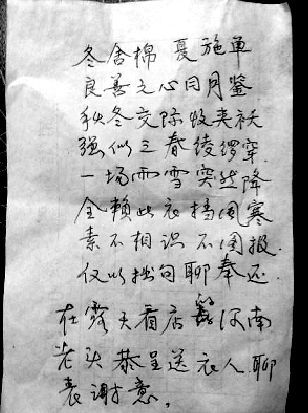 冬舍棉 夏施单
良善之心日月鉴
秋冬交际收夹袄
强似三春绫罗穿
一场雨雪突然降
全赖此衣挡风寒
素不相识不图报
仅以拙句聊奉还
在露天看店 河南
老头恭呈送衣人 聊
表谢意。